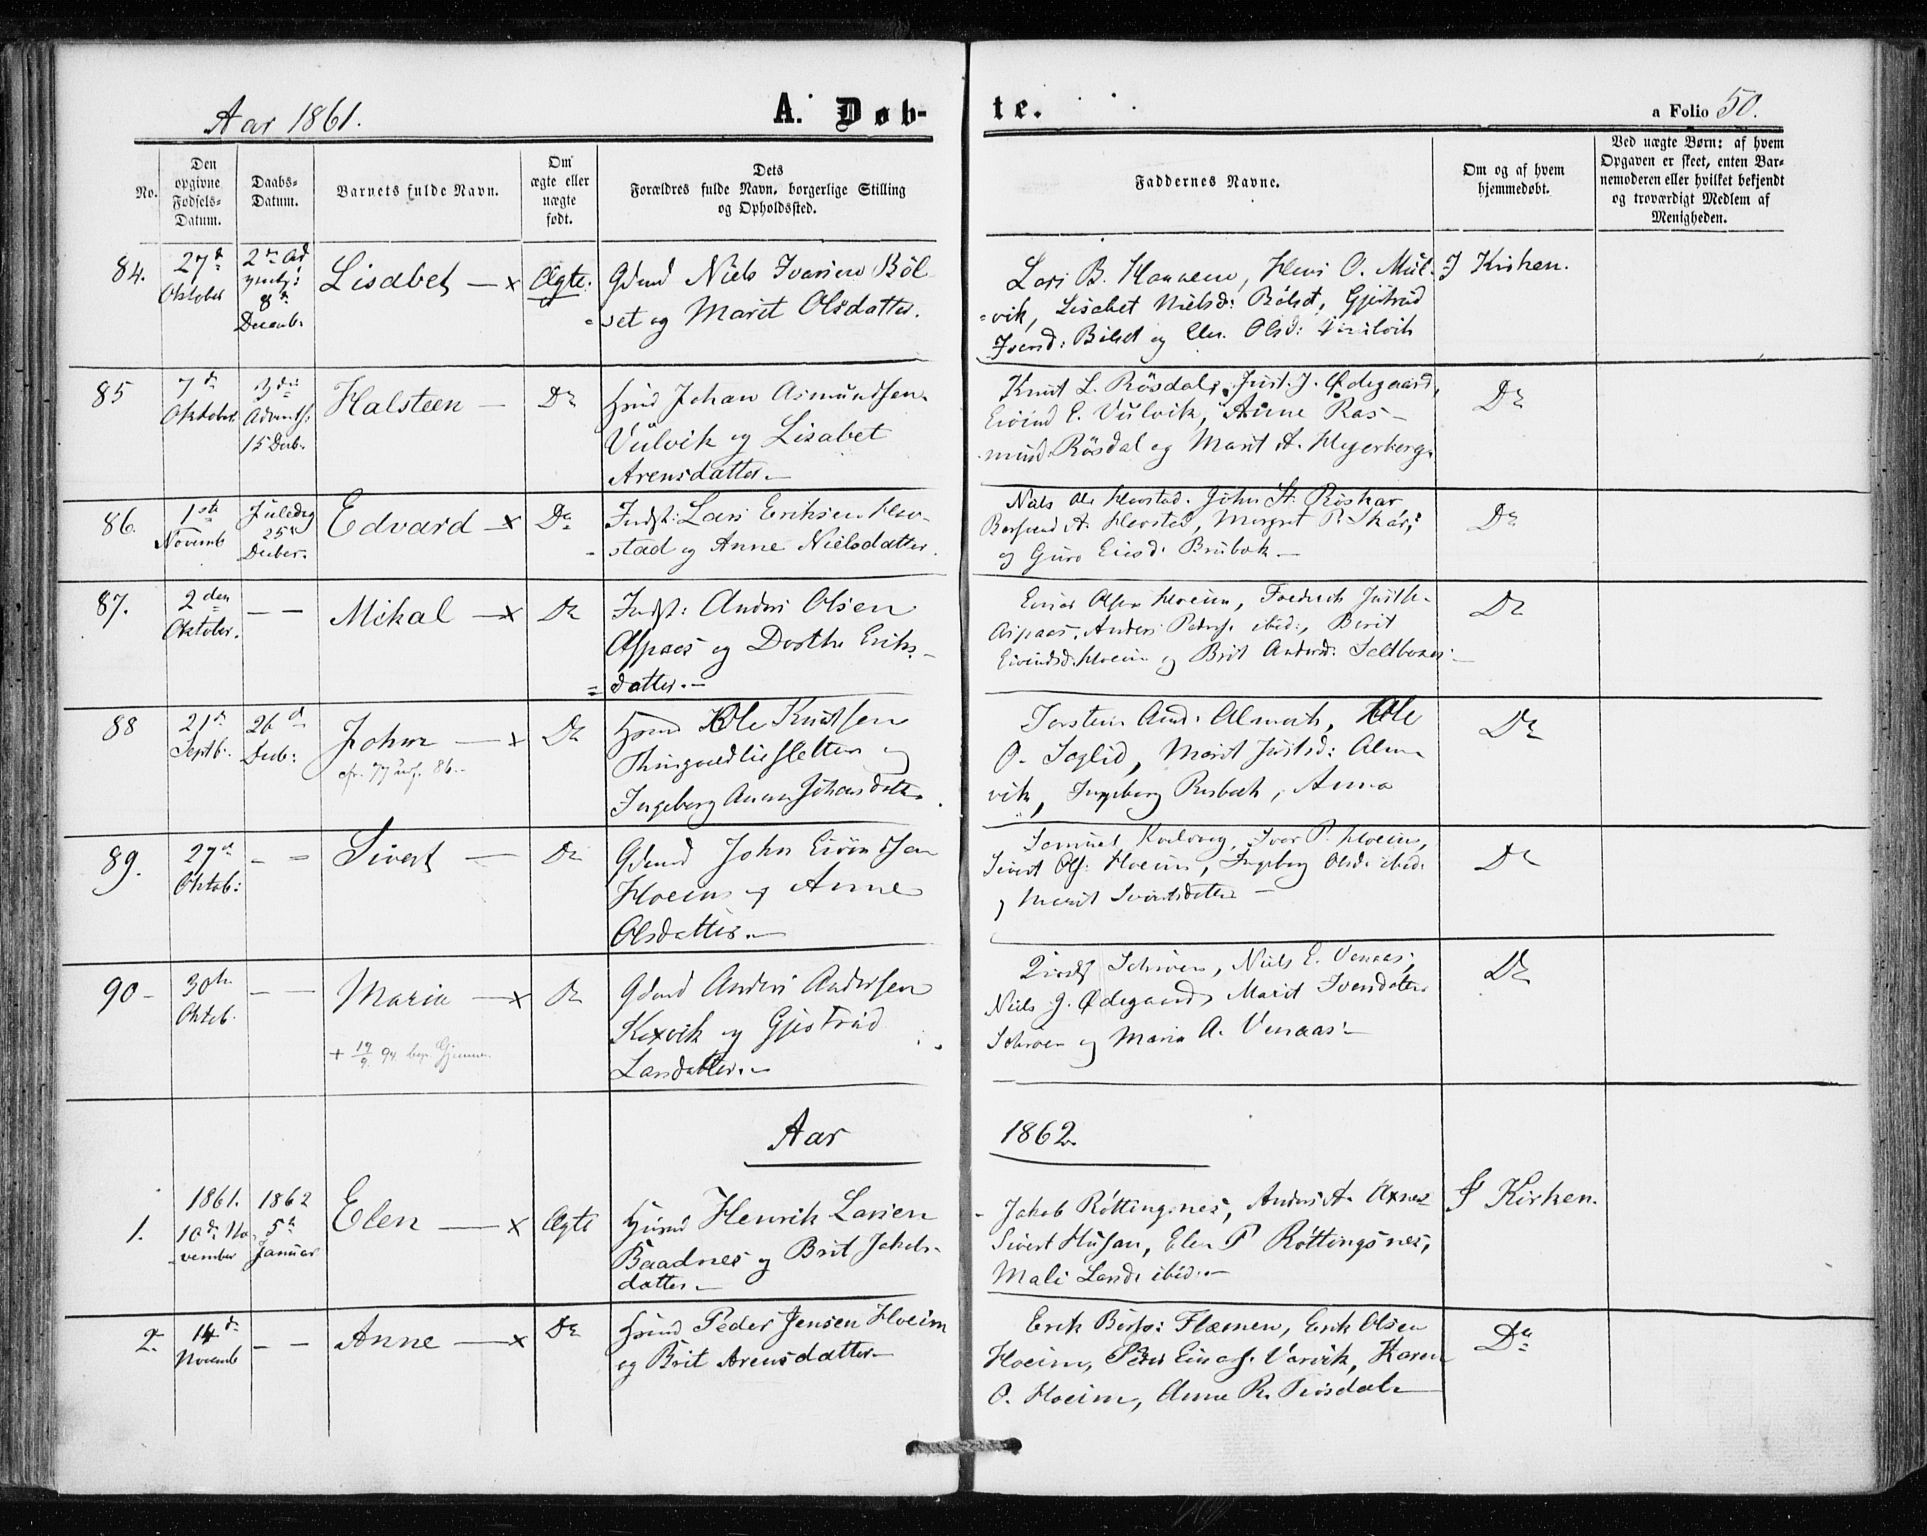 Aar 1861.
A. Døb-
te.
a Folio 50.
No.
Den
opgivne
Fødsels-
Datum.
Daabs-
Datum.
Barnets fulde Navn.
Om
ægte eller
uægte
født.
Dets
Forældres fulde Navn, borgerlige Stilling
og Opholdssted.
Faddernes Navne.
Om og af hvem
hjemmedøbt.
Ved uægte Børn: af hvem
Opgaven er skeet, enten Bar-
nemoderen eller hvilket bekjendt
og troværdigt Medlem af
Menigheden.
84.
27de
Oktober
2den Ad
8de
Decemb.
Lisabet
Ægte.
Gdmd Niels Iversen Böl-
set og Marit Olsdatter.
Lars B. Hannem, O. Mul-
vik, Lisabet Nielsd: Bölset, Gjertrud
Iversd: Bölset og Olsd:
I Kirken.
85
7de
Oktober
3die
Advents:
15 Decb.
Halsteen
Do
Hsmd Johan Asmundsen
Vulvik og Lisabet
Arensdatter.
Knut L. Rösdal, Just. J. Ødegaard,
Eivind E. Vulvik, Anne Ras-
musd. Rösdal og Marit A. Heyerberg.
Do
86.
1ste
Novemb
Juledag
25de
Decber.
Edvard
Do
Indst: Lars Eriksen Hav-
stad og Anne Nielsdatter.
Niels John St. Röskar
Margret P. Skar,
og Guro Brubak
Do
87.
2den
Oktober.
Mikal
Do
Indst: Anders Olsen
Aspaas og Dorthe Eriks-
datter.
Einar Olsen Hoeim, Frederich
Aspaas, Anders ibid:, Berit
Eivindsd. Hoeim og Brit Andersd:
Do
88
21de
Septb.
26de
Decb:
John
Do
Hsmd Ole Knutsen
og
Ingeborg Anna Johansdatter.
Torstein And: Almvik, Ole
O. Soglid, Marit Justsd: Alm-
vik, Ingeborg Anna
Do
89.
27de
Oktob:
Sivert
Do
Gdmd John Eivindsen
Hoeim og Anne
Olsdatter.
Samuel Iver P. Hoeim,
Sivert Ols: Hoeim, Ingeborg Olsd: ibid.
og Marit Sivertsdatter
Do
90
30te
Oktob.
Maria
+ 19/9 94
Do
Gdmd Anders Andersen
Kexvik og Gjertrud
Larsdatter.
Niels E. Venaas,
Niels J. Ødegaard, Marit Iversdatter
og Maria A. Venaas.
Do
Aar
1862.
1.
1861.
10de No-
vember
1862
5te
Januar
Elen
Ægte
Hsmd Henrik Larsen
Baadnes og Brit Jakobs-
datter.
Jakob Röttingsnes, Anders A. Axnes
Sivert Husan, Elen P. Röttingsnes,
Mali Larsd: ibid:
I Kirken.
2.
14de
Novemb
Anne
Do
Hsmd Peder Jensen Hoeim
og Brit Arensdatter
Erik Flæmen, Erik Olsen
Hoeim, Peder Einars. Vorvik, Karen
O. Hoeim, Anne R. Rösdal
Do